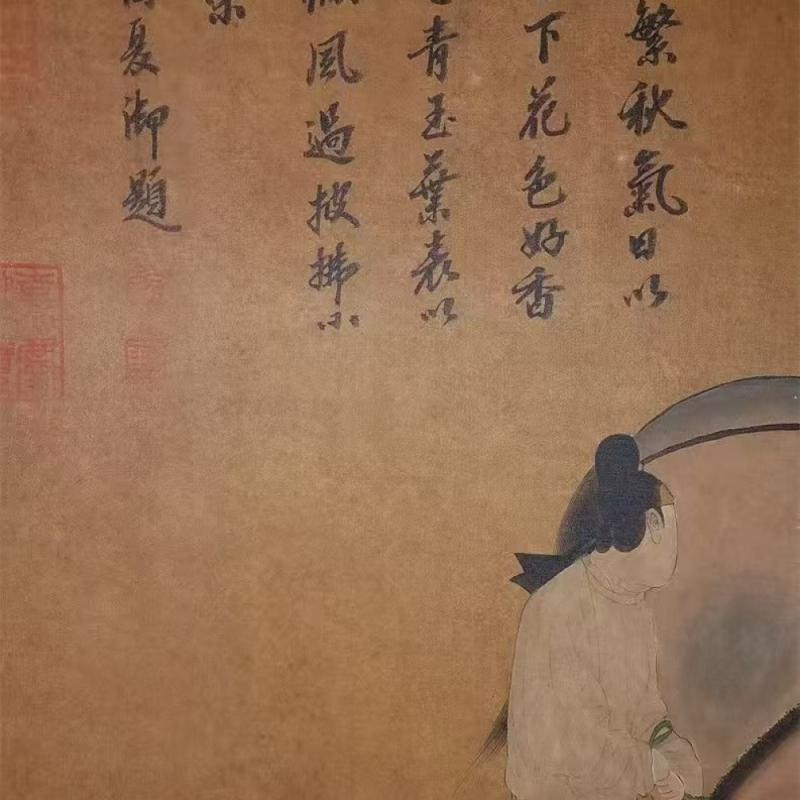 繁秋氣日以
下花色好香
青玉葉以
風過披拂小
夏御題